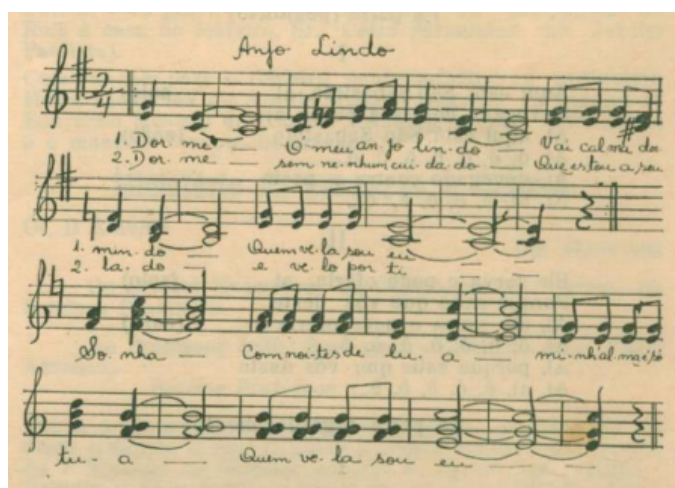 Anjo Lindo
2/4
1. Dor. me — Ó meu an. jo lin. do — Vai cal ma do
2. Dor. me — sem ne. nhum cui. da. do — Que estou a seu
1. min. do — Quem ve. la sou eu — —
2. la. do — e ve. lo por ti — —
So. nha — Com noi. tes de lu. a — mi. nh'al. ma é só
tu. a — Quem ve. la sou eu — — —